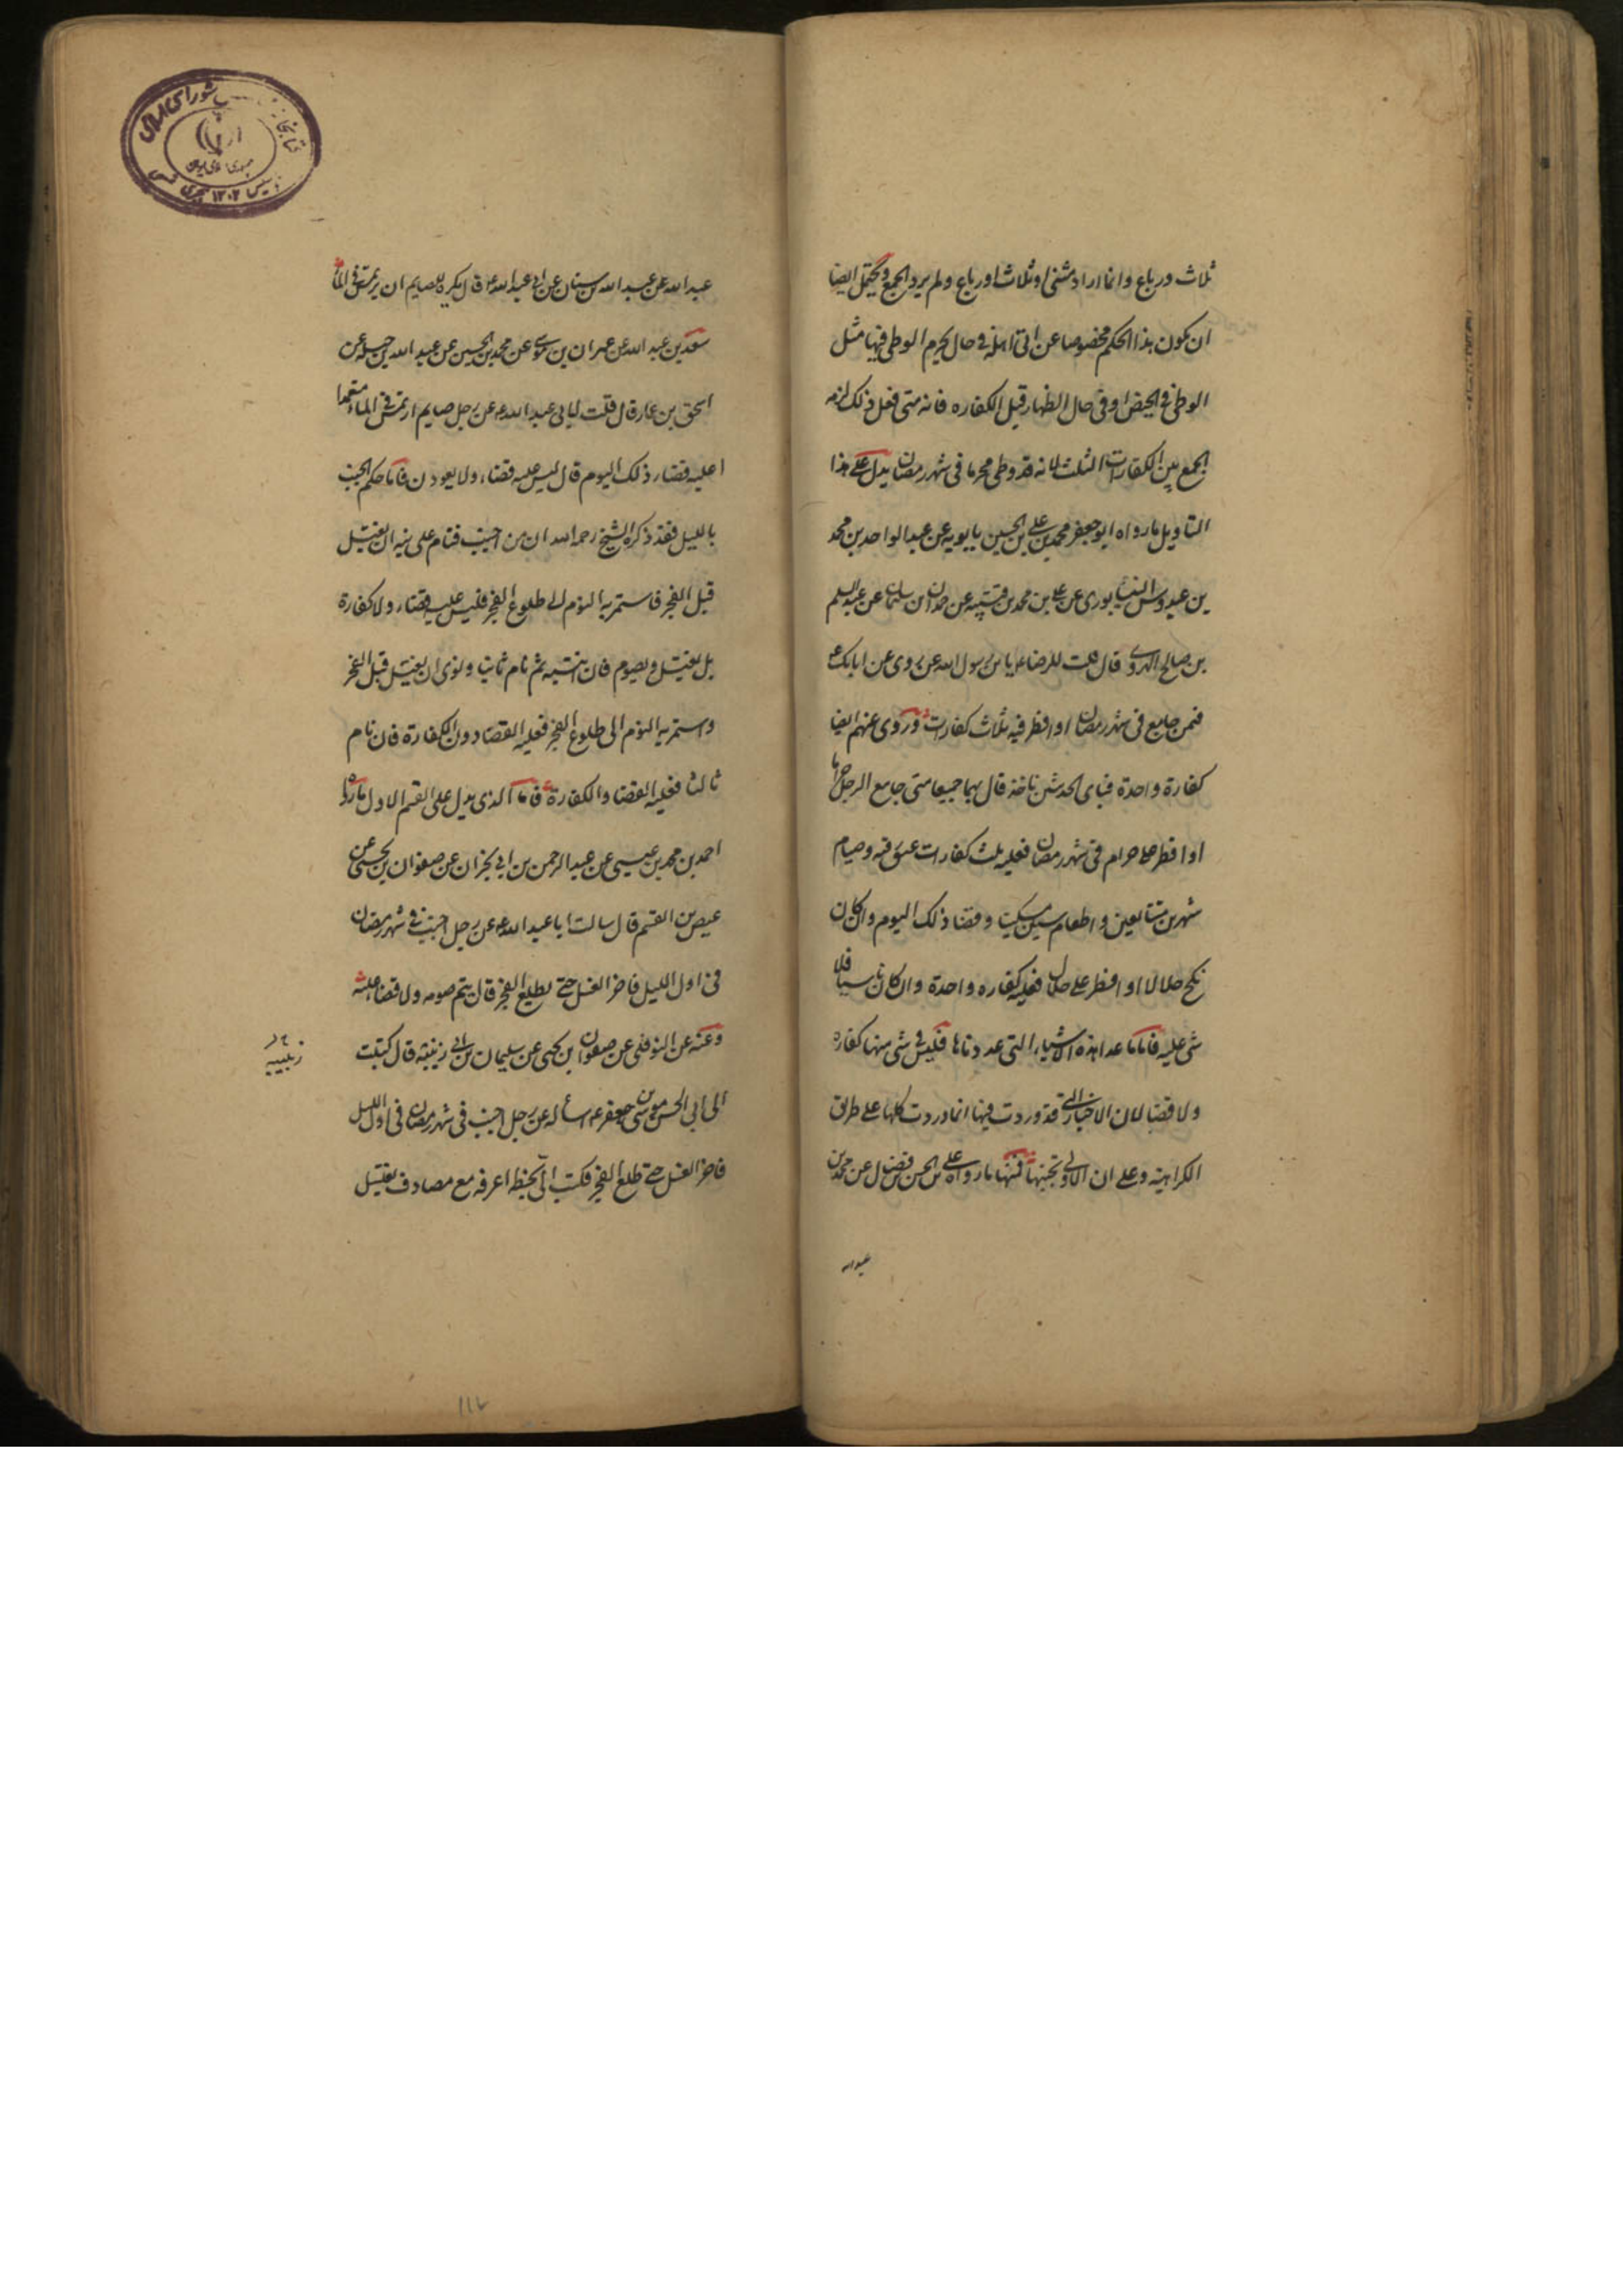 ثلاث ورباع وانما اراد مثنى او ثلاث او رباع ولم يرد الجمع ويحتمل ايضا
ان يكون هذا الحكم مخصوصا عن اتى اهله في حال يحرم الوطى فيها مثل
الوطى في الحيض او في حال الظهار قبل الكفاره فانه متى فعل ذلك لزمه
الجمع بين الكفارات الثلث لانه قد وطى محرما في شهر رمضان يدل على هذا
التاويل ما رواه ابو جعفر محمد بن على بن الحسين بابويه عن عبد الواحد بن محمد
بن عبدوس النيشابورى عن على بن محمد بن قتيبه عن حمدان بن سليمان عن عبد السلم
بن صالح الهروى قال قلت للرضا ع يا بن رسول الله قد روى عن ابائك ع
فمن جامع في شهر رمضان او افطر فيه ثلاث كفارات وروى عنهم ايضا
كفارة واحدة فباى الحديثين ناخذ قال بهما جميعا متى جامع الرجل حراما
او افطر على حرام في شهر رمضان فعليه ثلث كفارات عتق رقبه وصيام
شهرين متتابعين واطعام ستين مسكينا وقضا ذلك اليوم وان كان
نكح حلالا او افطر على حلال فعليه كفاره واحدة وان كان ناسيا فلا
شى عليه فاما ما عدا هذه الاشياء التى عددناها فليس في شى منها كفاره
ولا قضا لان الاخبار التى قد وردت فيها انما وردت كلها على طريق
الكراهية وعلى ان الاولى تجنبها فمنها ما رواه على بن الحسن بن فضال عن محمد بن
عبد الله
عبد الله عن عبد الله بن سنان عن ابى عبد الله ع قال يكره للصايم ان يرتمس في الماء
سعد بن عبد الله عن عمران بن موسى عن محمد بن الحسين عن عبد الله بن جبله عن
اسحق بن عمار قال قلت لابى عبد الله ع عن رجل صايم ارتمس في الماء متعمدا
اعليه قضاء ذلك اليوم قال ليس عليه قضاء ولا يعودن فاما حكم الجنب
بالليل فقد ذكره الشيخ رحمه الله ان من اجنب فنام على نيه ان يغتسل
قبل الفجر فاستمر به النوم الى طلوع الفجر فليس عليه قضاء ولا كفارة
بل يغتسل ويصوم فان انتبه ثم نام ثانيا ونوى ان يغتسل قبل الفجر
واستمر به النوم الى طلوع الفجر فعليه القضا دون الكفارة فان نام
ثالثا فعليه القضا والكفارة فاما الذى يدل على القسم الاول ما رواه
احمد بن محمد بن عيسى عن عبد الرحمن بن ابى نجران عن صفوان بن يحيى عن
عيص بن القسم قال سالت ابا عبد الله ع عن رجل اجنب في شهر رمضان
في اول الليل فاخر الغسل حتى يطلع الفجر قال يتم صومه ولا قضا عليه
وعنه عن النوفلى عن صفوان ابن يحيى عن سليمان بن ابى زينبه قال كتبت
زينبيه
الى ابى الحسن موسى بن جعفر ع اسأله عن رجل اجنب في شهر رمضان في اول الليل
فاخر الغسل حتى طلع الفجر فكتب الىّ بخطه اعرفه مع مصادف يغتسل